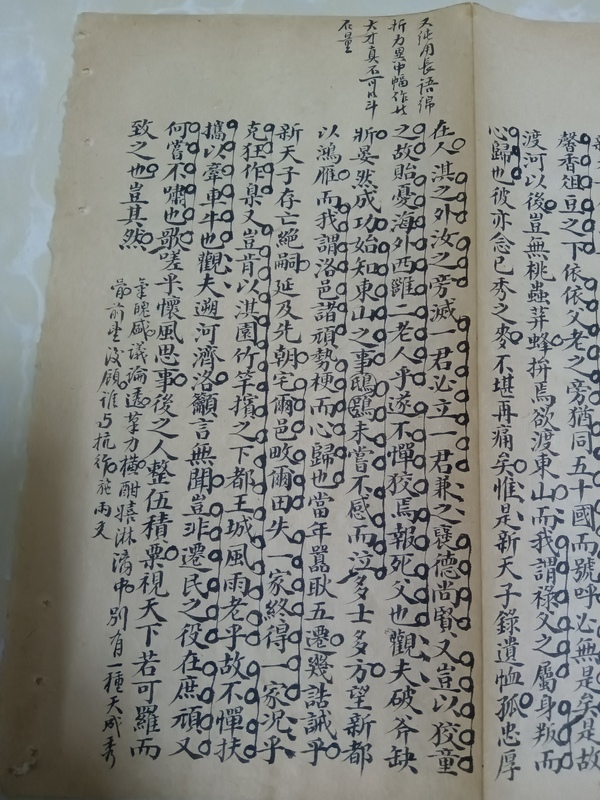 馨香俎豆之下依依父老之旁猶同五十國而號呼必無是矣是故
渡河以後豈無桃蟲荓蜂拚焉欲渡東山而我謂祿父之屬身叛而
心歸也彼亦念已秀之麥不堪再痛矣惟是新天子錄遺恤孤忠厚
又純用長語綿
折乃異中幅作此
大才真不可以斗
石量
在人淇之外汝之旁滅一君必立一君兼之襄德尚賢又豈以狡童
之故貽憂海外西雝二老人乎遂不憚狡焉報死父也觀夫破斧缺
斨晏然成功始知東山之事鴟鴞未嘗不感而泣多士多方望新都
以鴻雁而我謂洛邑諸頑勢梗而心歸也當年嚚耿五遷幾誥誡乎
新天子存亡絕嗣延及先朝宅爾邑畋爾田失一家終得一家況乎
克狂作臬又豈肯以淇園竹竿擯之下都王城風雨老乎故不憚扶
攜以牽車牛也觀夫遡河濟洛籲言無聞豈非遷民之役在庶頑又
何嘗不嘯也歌嗟乎懷風思事後之人整伍積粟視天下若可羅而
致之也豈其然
氣魄感議論透筆力橫酣嬉淋漓中別有一種天成秀
骨前坐後顧誰与抗行能兩文